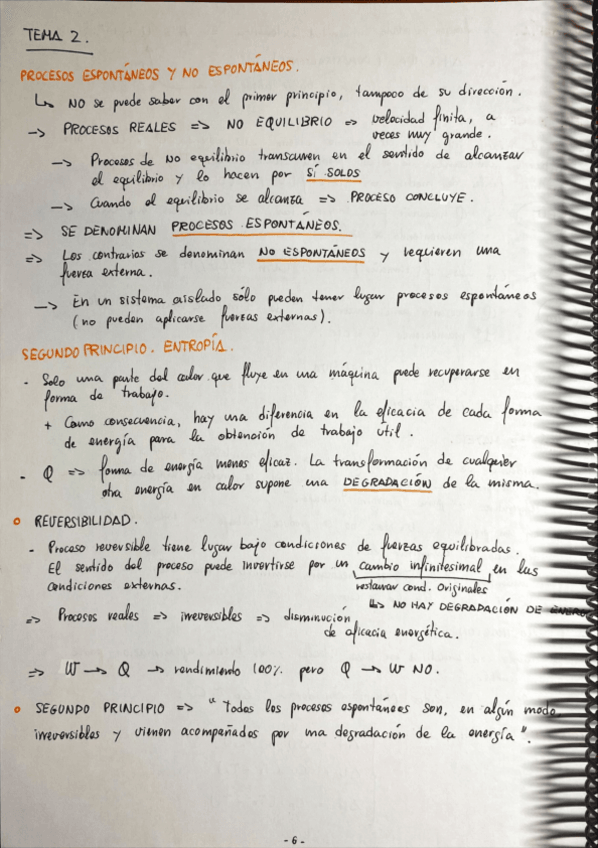 TEMA 2.
PROCESOS ESPONTÁNEOS Y NO ESPONTÁNEOS.
↳ NO se puede saber con el primer principio, tampoco de su dirección.
→ PROCESOS REALES => NO EQUILIBRIO => velocidad finita, a
veces muy grande.
→ Procesos de NO equilibrio transcurren en el sentido de alcanzar
el equilibrio y lo hacen por SÍ SOLOS
→ Cuando el equilibrio se alcanza => PROCESO CONCLUYE.
=> SE DENOMINAN PROCESOS ESPONTÁNEOS.
=> Los contrarios se denominan NO ESPONTÁNEOS y requieren una
fuerza externa.
→ En un sistema aislado sólo pueden tener lugar procesos espontáneos
(no pueden aplicarse fuerzas externas).
SEGUNDO PRINCIPIO. ENTROPÍA.
- Solo una parte del calor que fluye en una máquina puede recuperarse en
forma de trabajo.
+ Como consecuencia, hay una diferencia en la eficacia de cada forma
de energía para la obtención de trabajo útil.
- Q => forma de energía menos eficaz. La transformación de cualquier
otra energía en calor supone una DEGRADACIÓN de la misma.
o REVERSIBILIDAD.
- Proceso reversible tiene lugar bajo condiciones de fuerzas equilibradas.
El sentido del proceso puede invertirse por un cambio infinitesimal en las
condiciones externas.
restaurar cond. Originales
↳ NO HAY DEGRADACIÓN DE ENERG
=> Procesos reales => irreversibles => disminución
de eficacia energética.
=> W → Q → rendimiento 100% pero Q → W NO.
o SEGUNDO PRINCIPIO => "Todos los procesos espontáneos son, en algún modo
irreversibles y vienen acompañados por una degradación de la energía".
- 6 -